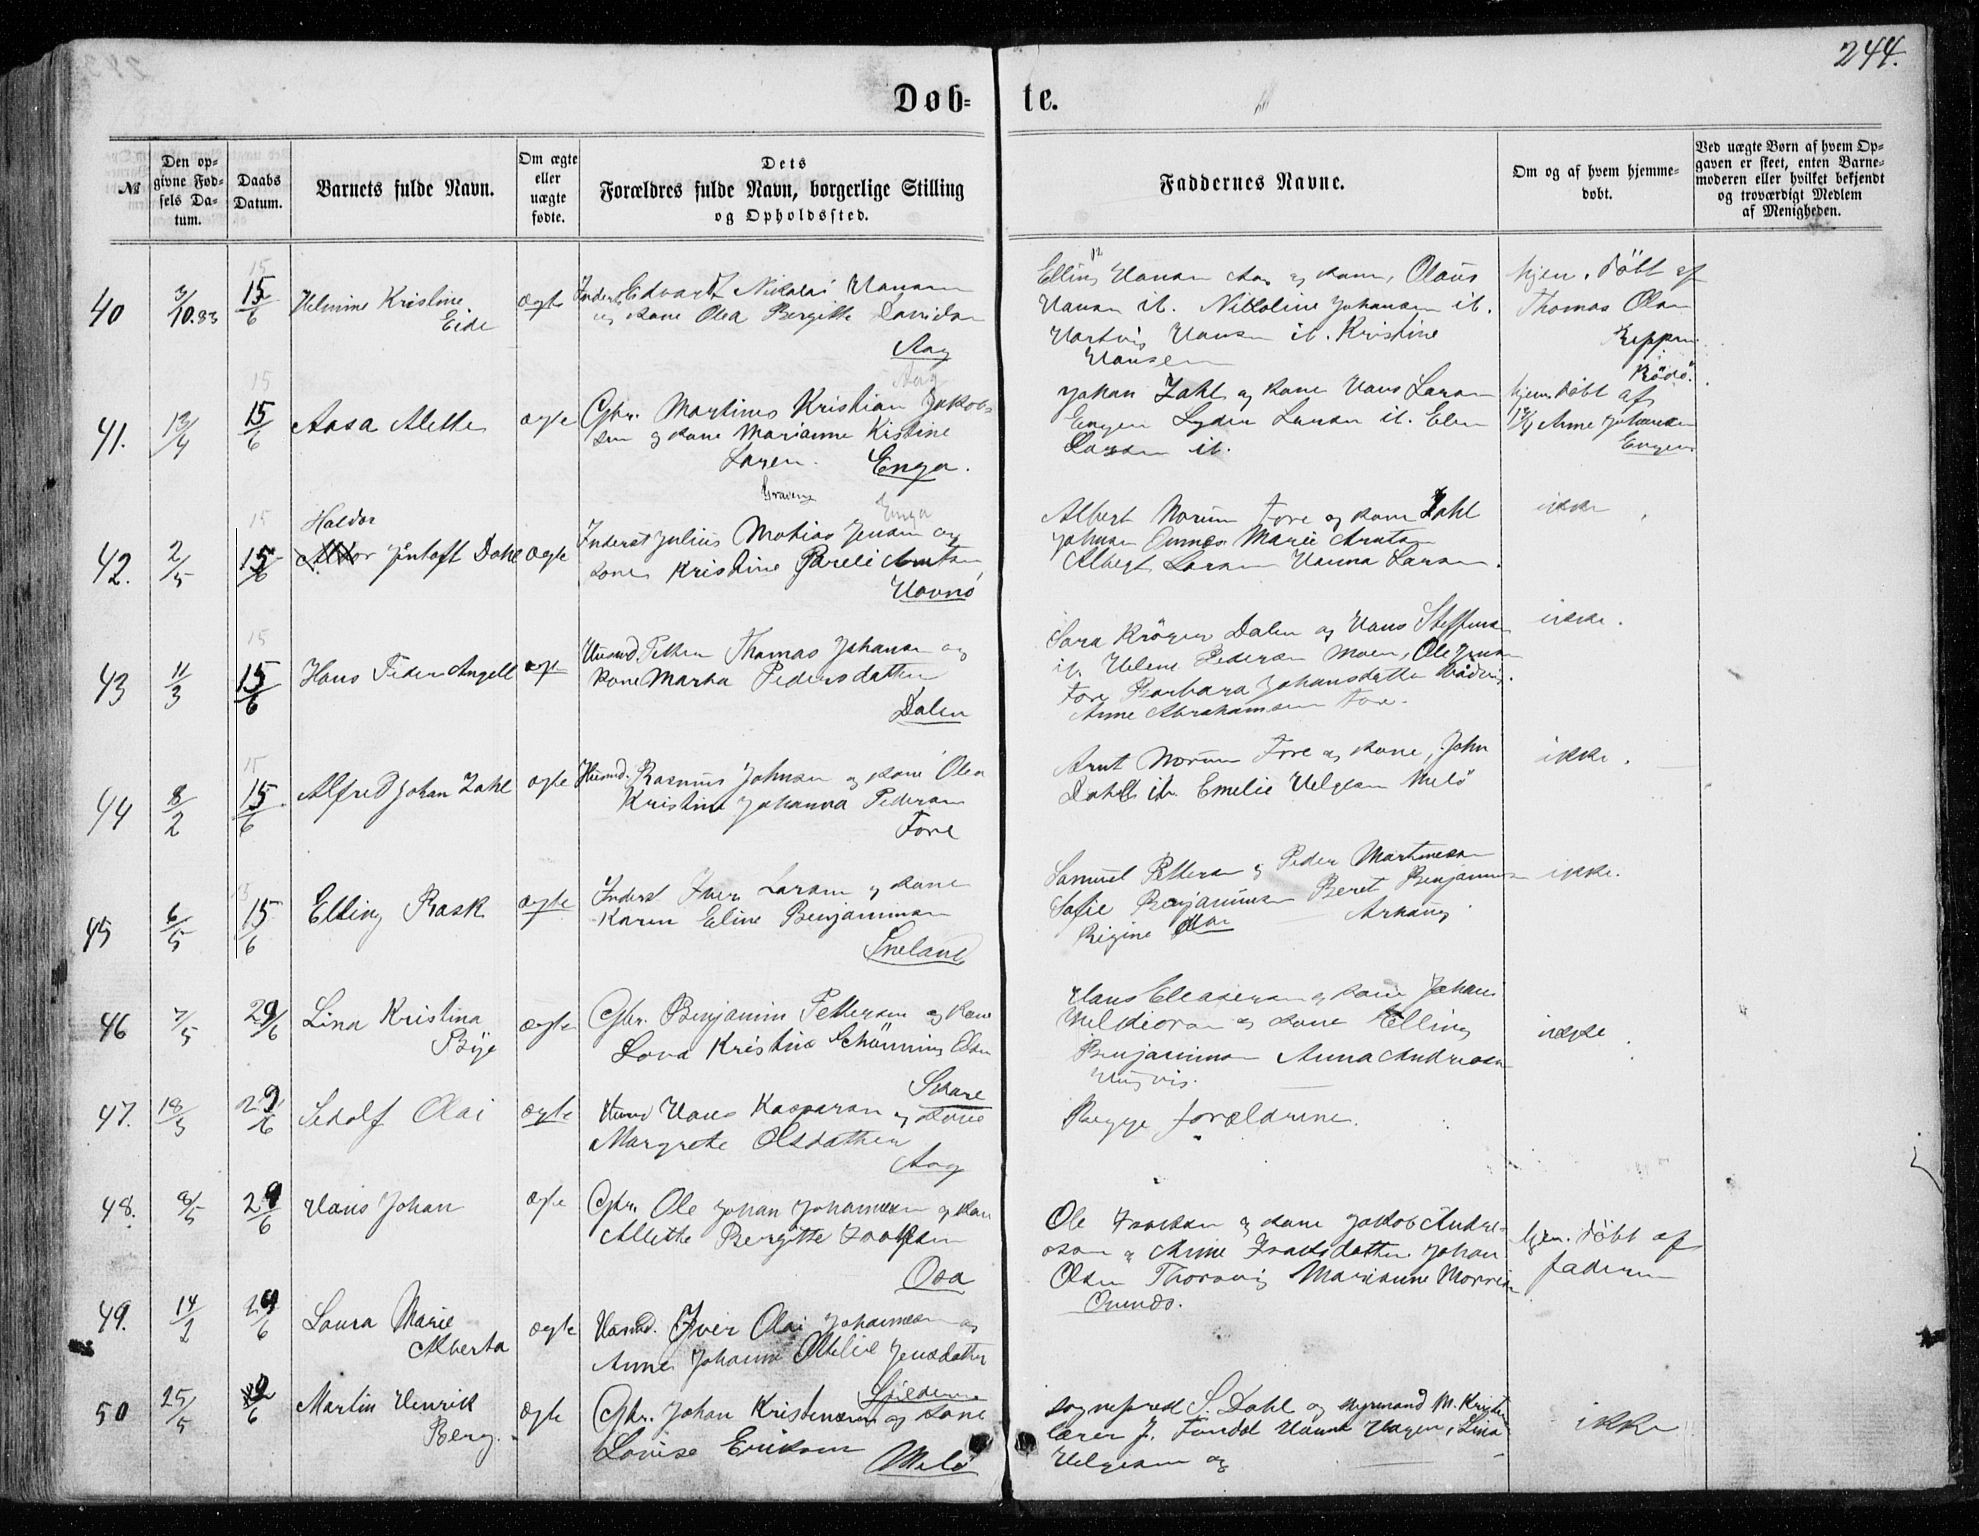 244.
Døb- te.
№
Den op-
givne Fød-
sels Da-
tum.
Daabs
Datum.
Barnets fulde Navn.
Om ægte
eller
uægte
fødte.
Dets
Forældres fulde Navn, borgerlige Stilling
og Opholdssted.
Faddernes Navne.
Om og af hvem hjemme-
døbt.
Ved uægte Børn af hvem Op-
gaven er skeet, enten Barne-
moderen eller hvilket bekjendt
og troværdigt Medlem
af Menigheden.
40
3/10.83
15
15/6
Helmine Kristine
Eide
ægte
Inderst Edvart Nikolai Hansen
og kone Olea Bergitte Davidsen
Aag
Aag
Elling Hansen Aag og kone, Olaus
Hansen ib. Nikoline Johansen ib.
Hartvig Hansen ib. Kristine
Hansen
hjem. døbt af
Thomas Olsen
Rödö
41.
13/4
15
15/6
Aasa Alette
ægte
Gbr. Martinus Kristian Jakob-
sen og kone Marianne Kistine
Larsen. Enga.
Enga
Johan Zahl og kone Hans Larsen
Engen Lyder Larsen ib. Elen
Larsen ib.
hjem. døbt af
Anne Johansen
Engen
42.
2/5
15
15/6
Haldor
Jentoft Dahl
ægte
Inderst Julius Mathias Jensen og
kone Kristine Pareli Arntsen
Havnö
Albert Norum Fore og kone Zahl
Johnsen Ovnes Marie Arntsen
Albert Larsen Hanna Larsen.
ikke
43
11/3
15
15/6
Hans Peder Angell
ægte
Husmd Petter Thomas Johansen og
kone Marta Pedersdatter
Dalen
Sara Kröger Dalen og Hans Steffensen
ib. Helene Pedersen Moen, Ole Jensen
Fore Barbara Johansdatter
Anne Abrahamsen Fore.
ikke.
44
8/2
15
15/6
Alfred Johan Zahl
ægte
Husmd. Rasmus Johnsen og kone Olea
Kristine Johanna Pedersen
Fore
Arnt Norum Fore og kone, John
Dahl ib. Emelie Helgesen Melö
ikke.
45
6/5
15/6
Elling Rask
ægte
Inderst Iver Larsen og kone
Karen Eline Benjaminsen
Sneland
Samuel Pettersen og Peder Martinesen
Sofie Benjaminsen Beret Benjaminsen
Rigine Arhaug
ikke.
46
7/5
29/6
Lina Kristina
Bye
ægte
Gbr. Benjamin Pettersen og kone
Lova Kristine Schönning Olsen
Skare
Hans Eleasersen og kone Johan
Melkiorsen og kone Elling
Benjaminsen Anna Andreasen
ikke
47.
18/3
29/6
Sedolf Olai
ægte
Husmd Hans Kaspersen og kone
Margrete Olsdatter
Aag
Begge forældrene.
48.
8/5
29/6
Hans Johan
ægte
Gbr. Ole Johan Johannesen og kone
Alette Bergitte Isaksen
Osa
Ole Isaksen og kone Jakob Andre-
asen og Anne Isaksdatter. Johan
Olsen Thorsvig Marianne
Ovnes.
hjem. døbt af
faderen
49.
14/2
29/6
Laura Marie
Alberta
ægte
Husmd. Iver Olai Johannesen og
Anne Johanna Otelie Jensdatter
Spilderen
50
25/5
29/6
Martin Henrik
Berg.
ægte
Gbr. Johan Kristensen og kone
Lovise Eriksen
Melö
sognepræst S. Dahl og M.
lærer J. Fondal Hanna Hagen, Lina
Helgesen og
ikke